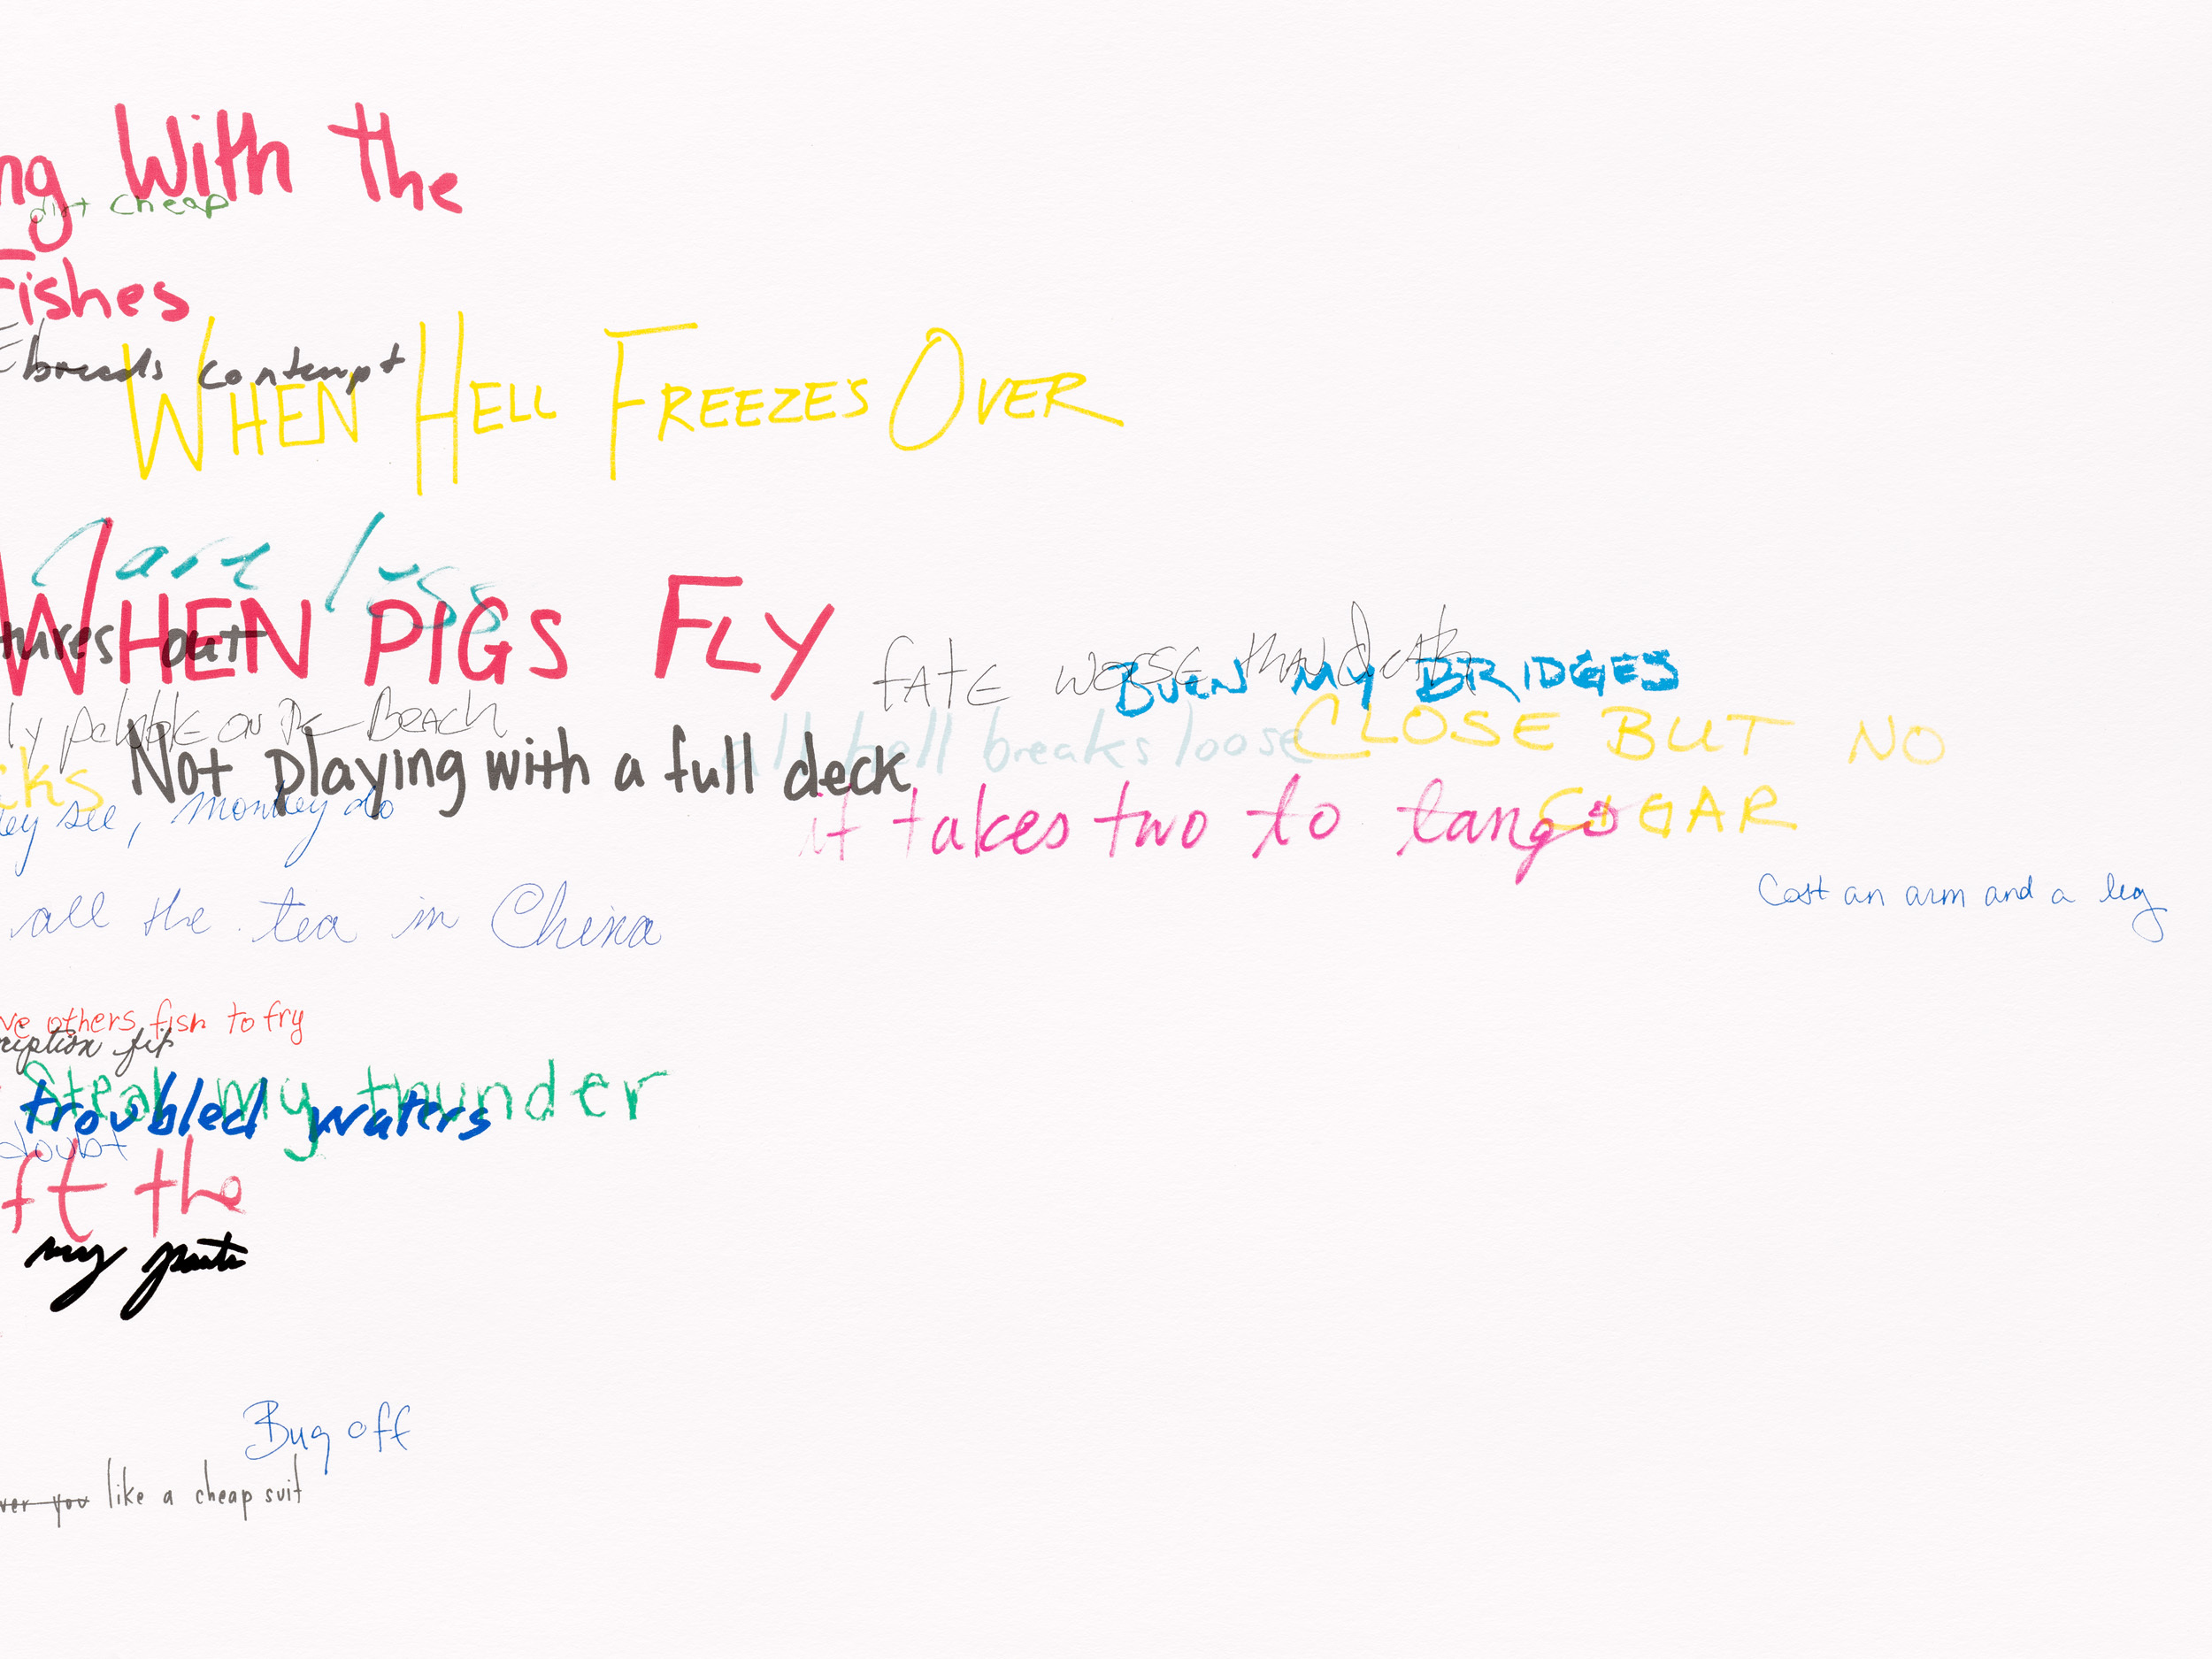 ng With the
dirt cheap
Fishes
breeds contempt
WHEN HELL FREEZES OVER
Care less
WHEN PIGS FLY
tures out
FATE WORSE THAN death
BURN MY BRIDGES
ly pebble on the Beach
all hell breaks loose
CLOSE BUT NO
Not playing with a full deck
cks
ey see, Monkey do
it takes two to tango
CIGAR
Cost an arm and a leg
all the tea in China
ve others fish to fry
ription fit
Steal my thunder
troubled waters
doubt
ft the
my pants
Bug off
ver you like a cheap suit